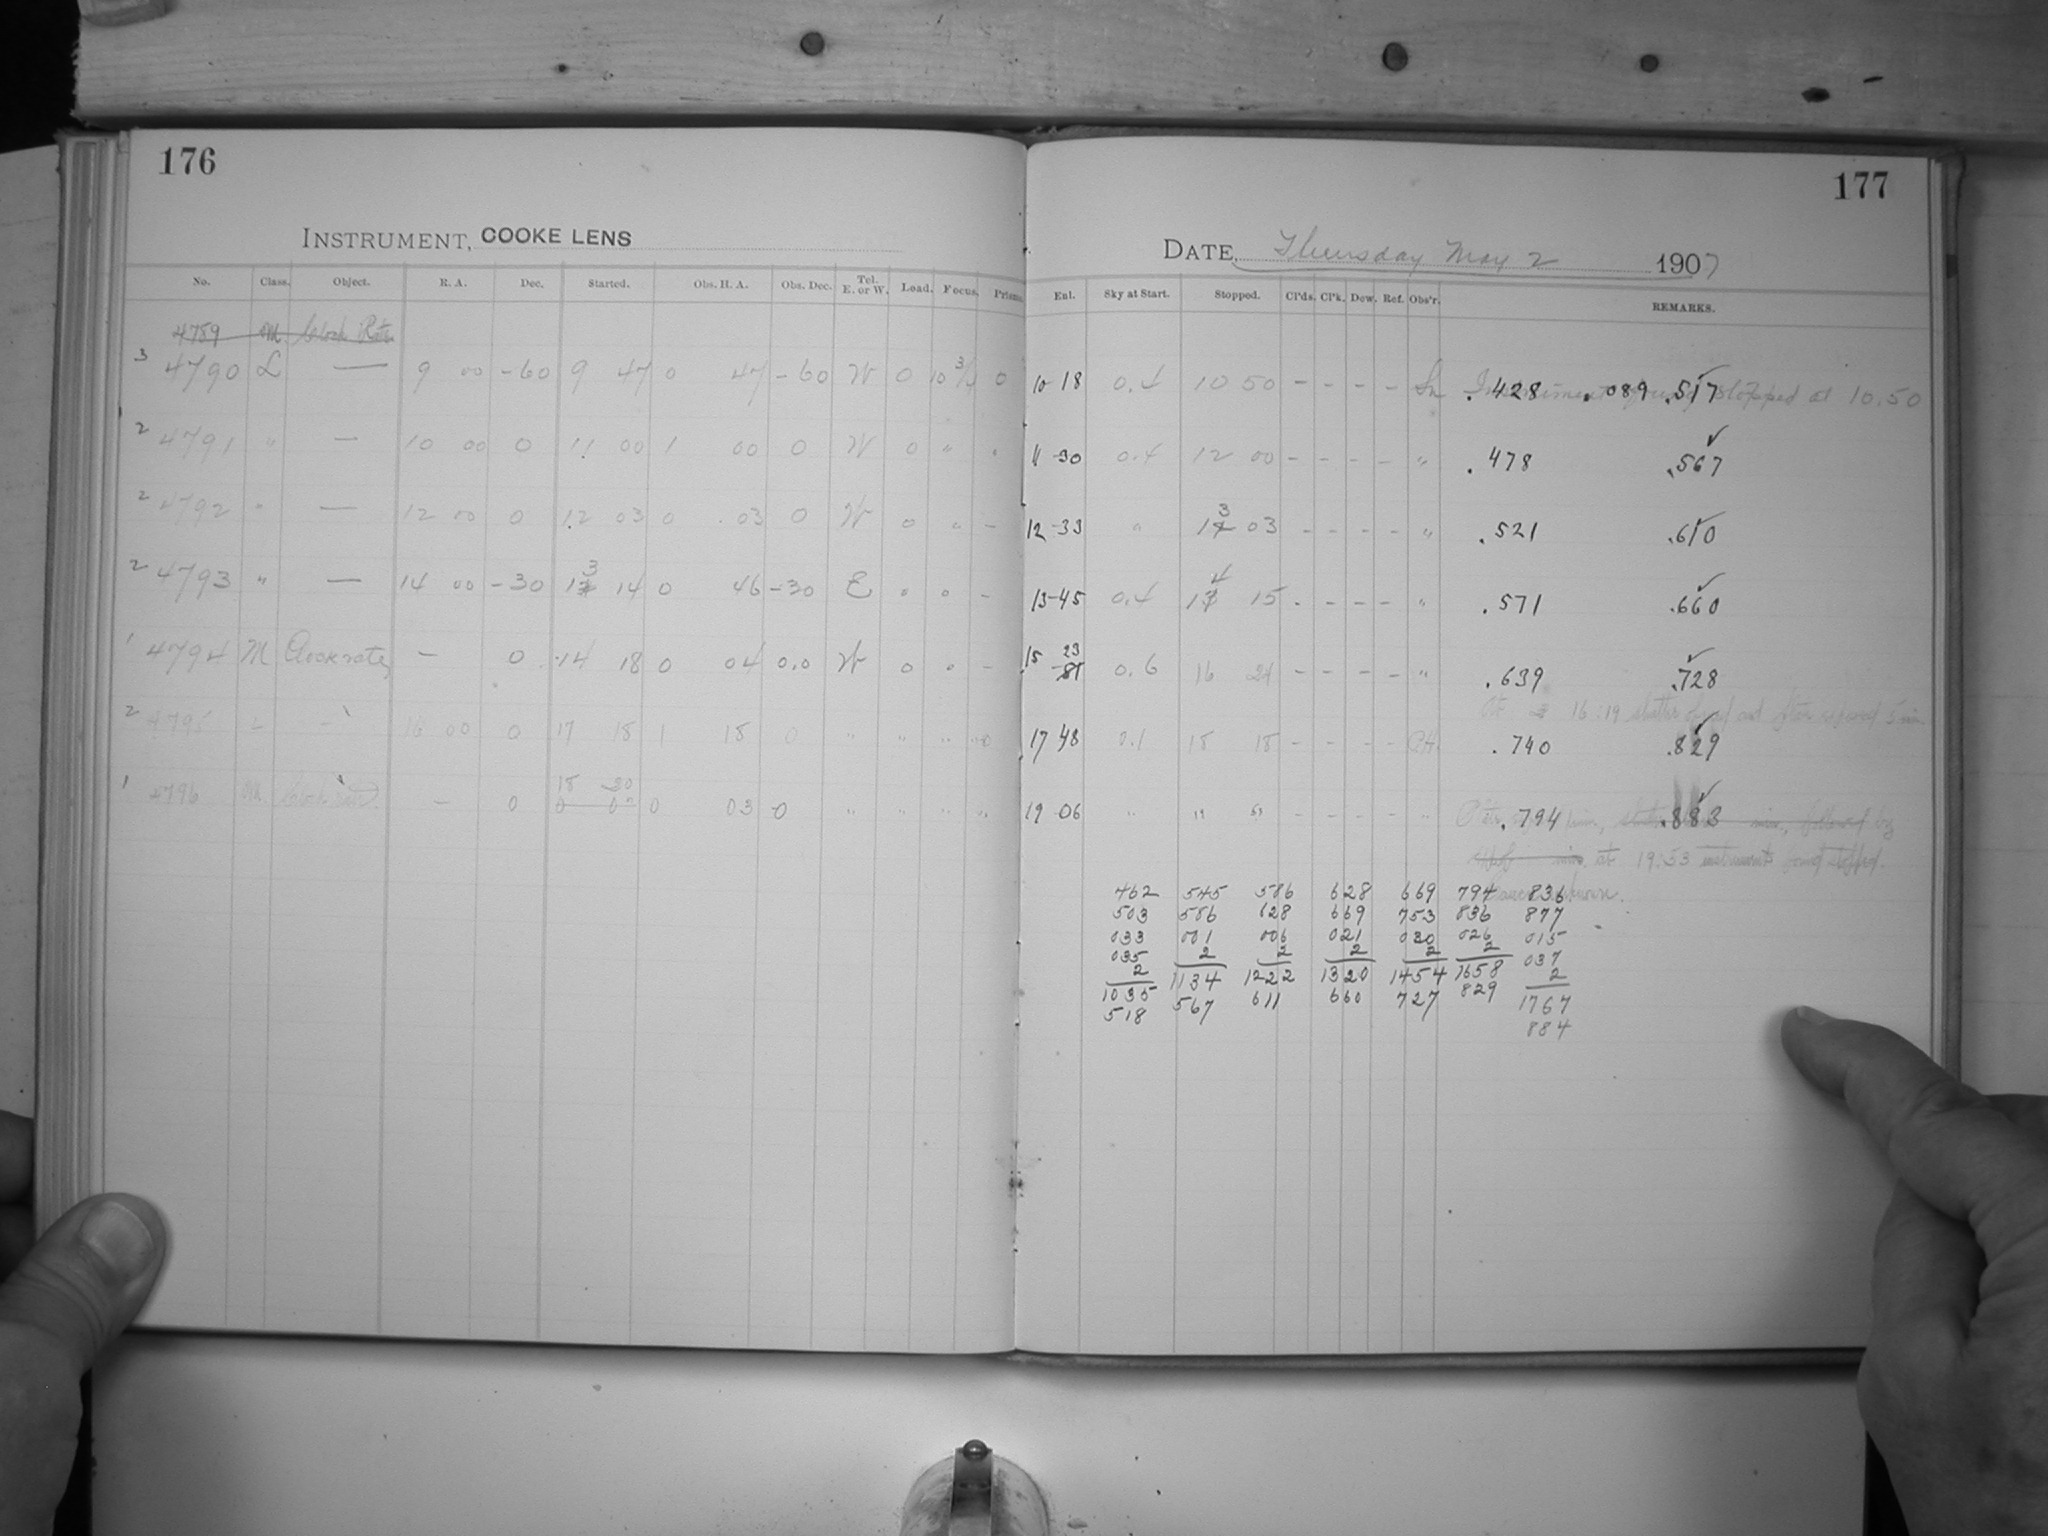 176
INSTRUMENT, COOKE LENS
No. Class. Object. R. A. Dec. Started. Obs. H. A. Obs. Dec. Tel. E. or W. Load. Focus. Prisms.
4789 M Clock Rate
3 4790 L — 9 00 -60 9 47 0 47 -60 W 0 10 3/4 0
2 4791 " — 10 00 0 11 00 1 00 0 W 0 " "
2 4792 " — 12 00 0 12 03 0 03 0 W 0 " -
2 4793 " — 14 00 -30 13 14 0 46 -30 E 0 0 -
1 4794 M Clock rate — 0 14 18 0 04 0.0 W 0 0 -
2 4795 L - 16 00 0 17 18 1 18 0 " " " 0
1 4796 M Clock rate - 0 18 20 0 03 0 " " " "
177
DATE, Thursday May 2 1907
Enl. Sky at Start. Stopped. Cl'ds. Cl'k. Dew. Ref. Obs'r. REMARKS.
10-18 0.4 10 50 - - - - .428 .089 .517 Instrument stopped at 10.50
11-30 0.4 12 00 - - - - " .478 .567
12-33 " 13 03 - - - - " .521 .610
13-45 0.4 14 15 - - - - " .571 .660
15 23 0.6 16 24 - - - - " .639 .728
At 16:19
17 48 0.1 18 18 - - - - .740 .829
19-06 " 19 53 - - - - " .794 .883 followed by
at 19:53 instrument found stopped.
462 545 586 628 669 794 836
503 586 628 669 753 836 877
033 001 006 021 030 026 015
035 2 2 2 2 2 037
2 1134 1222 1320 1454 1658 2
1035 567 611 660 727 829 1767
518 884